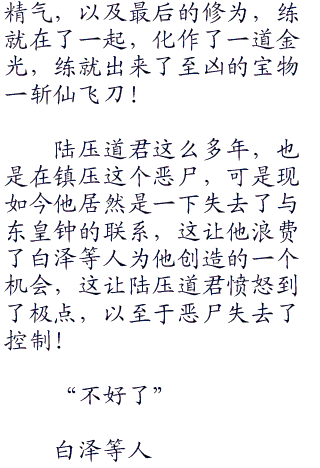 精气，以及最后的修为，练
就在了一起，化作了一道金
光，练就出来了至凶的宝物
一斩仙飞刀！
陆压道君这么多年，也
是在镇压这个恶尸，可是现
如今他居然是一下失去了与
东皇钟的联系，这让他浪费
了白泽等人为他创造的一个
机会，这让陆压道君愤怒到
了极点，以至于恶尸失去了
控制！
“不好了”
白泽等人